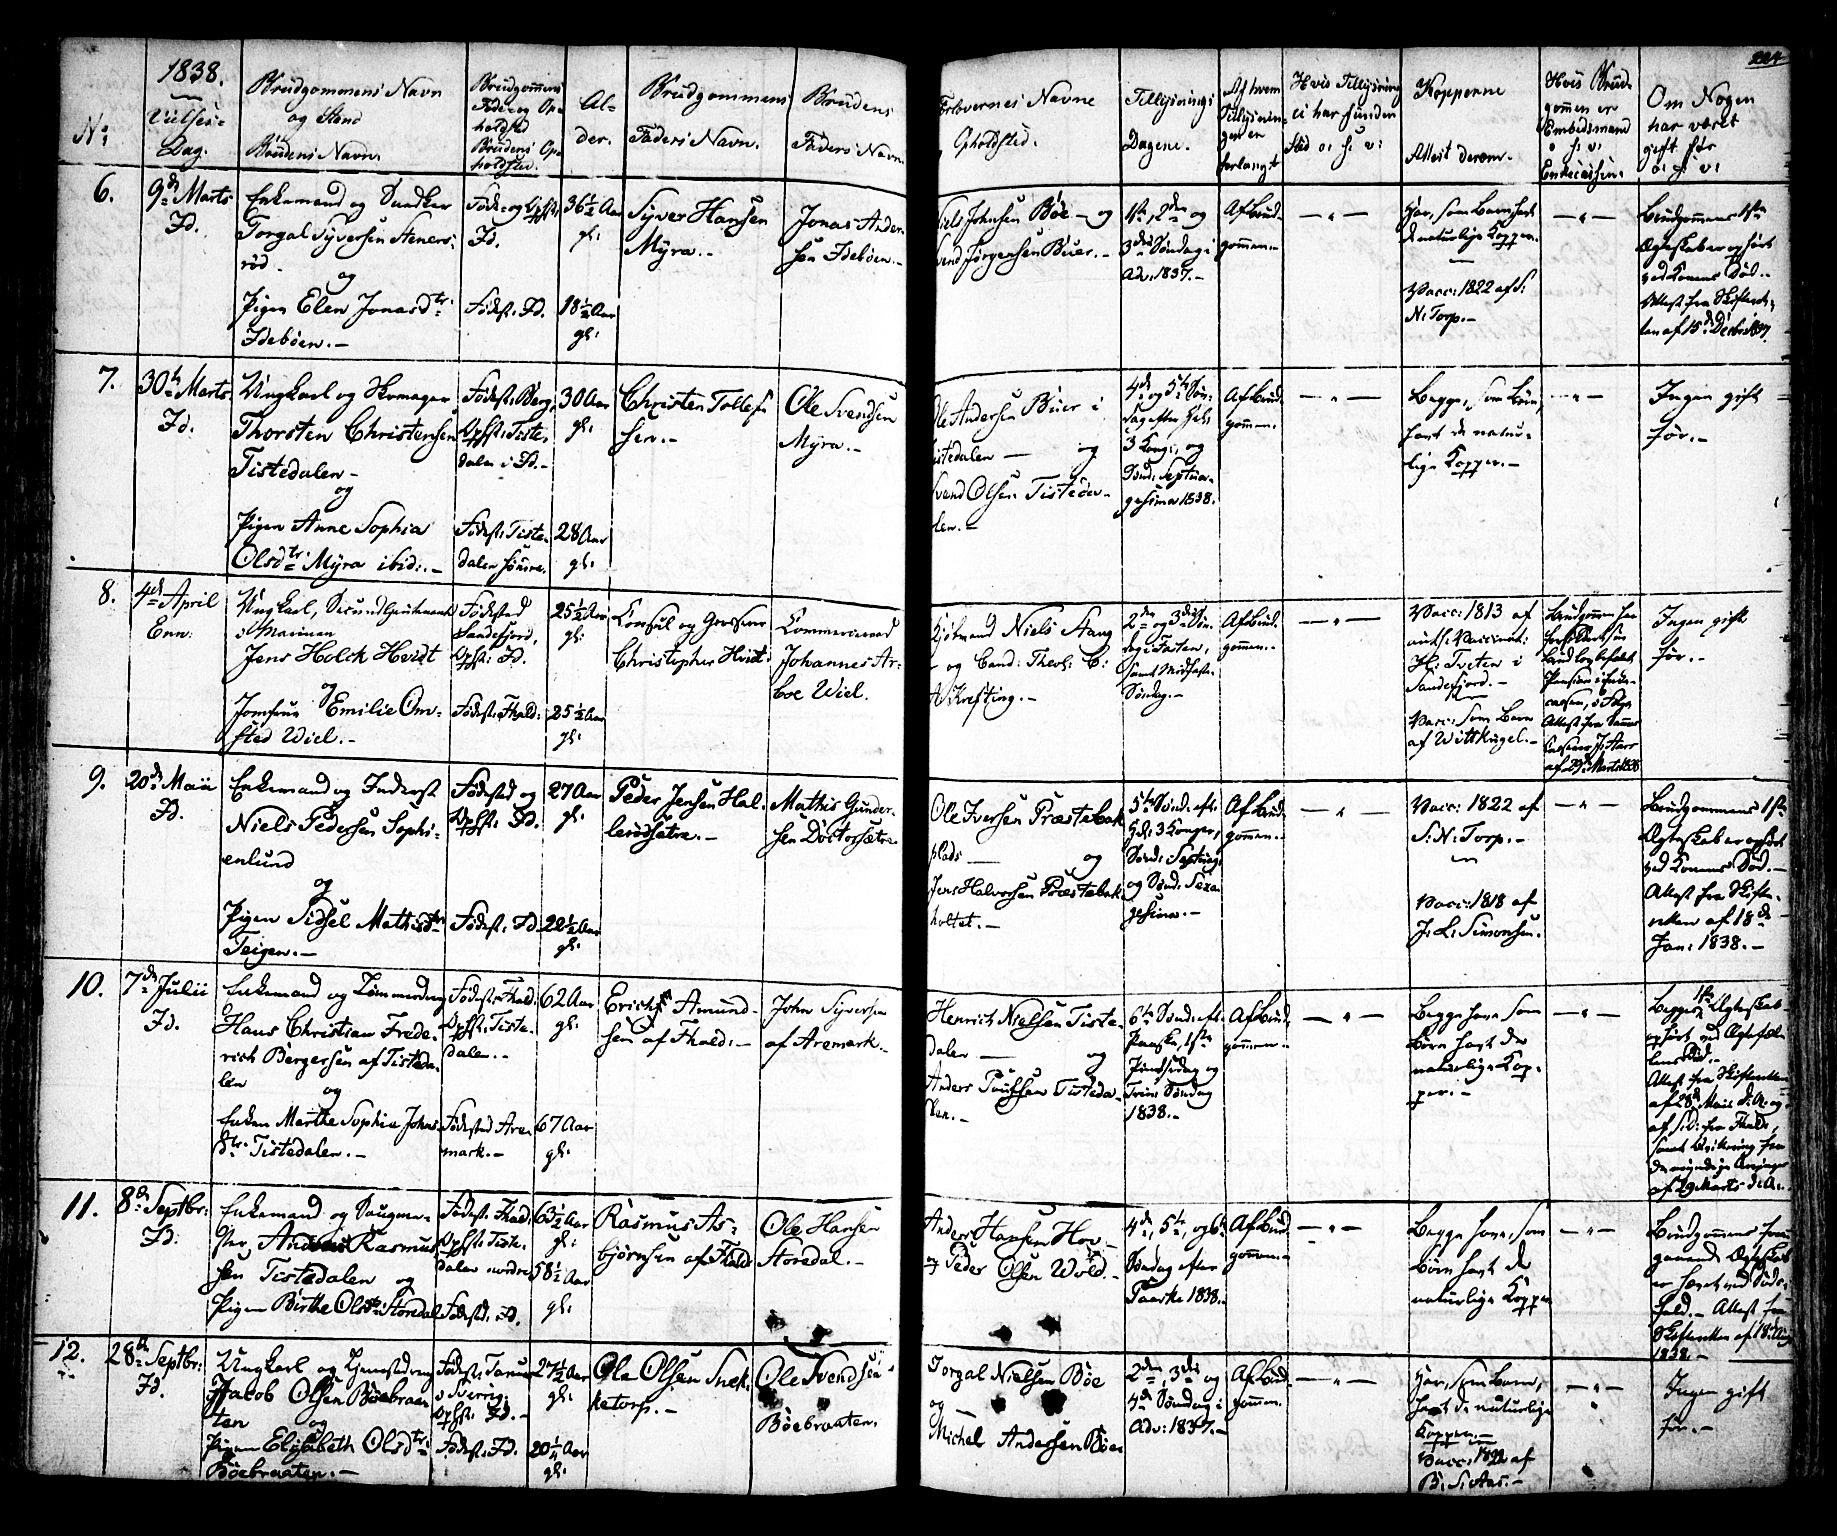 224
1838.
N:
Vielses-
Dag.
Brudgommens Navn
og Stand
Brudens Navn.
Brudgommens
Føde og Op-
holdsted
Brudens Op-
holdsted.
Al-
der.
Brudgommens
Faders Navn.
Brudens
Faders Navn.
Forlovernes Navne
Opholdsted.
Tillysnings
Dagene.
Af hvem
Tillysnin-
gen er
forlangt
Hvis Tillysning
ei har funden
Sted o: s: v:
Kopperne
Attest derom.
Hvis Brud-
gommen er
Embedsmand
o: s: v:
Om Nogen
har været
gift før
o: s: v:
6.
9de Marts
Id.
Enkemand og
Torgal Syversen Steners-
rød
og
Pigen Elen Jonasdtr:
Idebøen.-
Føde og Opst:
Id.
Fødest: Id.
36½ Aar
gl:
18½ Aar
gl:
Syver Hansen
Myra.-
Jonas Ander-
sen Idebøen.-
Niels Johnsen Bøe - og
Svend Jørgensen Buer.-
1ste, 2den og
3die Søndag i
Adv: 1837.-
Af Brud-
gommen.-
-"-
Har, som Barn havt
de naturlige Kopper.
Vacc: 1822 af S:
N: Torp.-
-"-
Brudgommens 1ste
Ægteskab er ophört
ved Konens Død.-
Attest fra Skifteret-
ten af 15de Decbr 1837.
7.
30te Marts
Id.
Ungkarl og Skomager
Thorsten Christensen
Tistedalen-
og
Pigen Anne Sophia
Olsdtr: Myra ibid:.-
Fødest: Berg,
Opst: Tiste-
dalen i Id.-
Fødest: Tiste-
dalen søndre.
30 Aar
gl:
28 Aar
gl:
Christen Tollef-
sen.-
Ole Svendsen
Myra.-
Ole Andersen Buer i
Tistedalen - og
Svend Olsen Tisteda-
len.-
4de og 5te Søn-
dag efter Hel:
3 Kong: og
Sønd: Septua-
gesima 1838.
Af Brud-
gommen.
-"-
Begge, som Børn,
havt de natur-
lige Kopper.-
-"-
Ingen gift
før.-
8.
4de April
Enn:
Ungkarl, Secondlieutenant
i Marinen
Jens Holck Hvidt
og
Jomfrue Emilie Om-
sted Wiel.-
Fødested
Sandefjord,
Opst: Id.
Fødest: Fhald:
25½ Aar
gl:
25½ Aar
gl:
Consul og Grosserer
Christopher Hvidt.
Commerceraad
Johannes Ar-
boe Wiel.
Niels Stang
- og Cand: Theol: C:
A: Krefting.-
2den og 3die Søn-
dag i Fasten,
samt Midfaste-
Søndag.-
Af Brud-
gommen.-
-"-
Vacc: 1813 af
auth: Vaccinat:
H: Tveten i
Sandefjord.-
Vacc: som Barn
af Wittkugel.-
Pension i Enke-
cassen, 
Attest fra
af 29de Marts 1838
Ingen gift
før.-
9.
20de Maii
Id.
Enkemand og Inderst
Niels Pedersen Sophi-
enlund
og
Pigen Sidsel Mathisdtr
Teigen.-
Fødested og
Opst: Id.
Fødest: Id.
27 Aar
gl:
22½ Aar
gl:
Peder Jensen Hal-
lerødsætre.-
Mathis Gunder-
sen Doctorsætre
Ole Iversen Præstebak
plads - og
Jens Halvorsen Præstebak-
holtet.-
5te Sønd: eft:
Hel: 3 Konger,
Sønd: Septuag:
og Sønd: Sexa-
gesima.-
Af Brud-
gommen.-
-"-
Vacc: 1822 af
S: N: Torp.-
Vacc: 1818 af
J: L: Simonsen.-
-"-
Brudgommens 1ste
Ægteskab er ophört
ved Konens Død.-
Attest fra Skifte-
retten af 18de
Jan: 1838.-
10.
7de Julii
Id.
Enkemand og Tømmerdreng
Hans Christian Frede-
rich Bergersen af Tisteda-
len
og
Enken Marthe Sophie Johns-
dtr: Tistedalen.-
Fødest: Fhald.
Opst: Tiste-
dalen.-
Fødested Are-
mark.-
62 Aar
gl:
67 Aar
gl:
Erich Amund-
sen af Fhald:-
John Syversen
af Aremark.-
Henrich Nielsen Tiste-
dalen - og
Anders Poulsen Tisteda-
len.-
6te Sønd: eft:
Paaske, 1ste
Pintsedag og
Trin: Søndag
1838.-
Af Brud-
gommen.-
-"-
Begge have som
Børn havt de
naturlige Kop-
per.-
-"-
Begges 1ste Ægteskab
ophört ved Ægtefæl-
lens Död.-
Attest fra Skifteretten
af 28de Maii d: A: og
af S: D: fra Fhald,
samt Qvittering fra
af 29 Marts d: A:.
11.
8de Septbr:
Id:
Enkemand og Saugme-
ster, Anders Rasmus-
sen Tistedalen og
Pigen Birthe Olsdtr: Storedal
Fødest: Fhald.
Opst: Tiste-
dalen nordre
Fødested: Id.
63½ Aar
gl:
58½ Aar
gl:
Rasmus As-
bjørnsen af Fhald.
Ole Hansen
Storedal.-
Anders Hansen Hov-
og Peder Olsen Wold.-
4de, 5te, og 6te
Søndag efter
Paaske 1838.
Af Brud-
gommen.-
-"-
Begge have, som
Børn havt de
naturlige Kopper
-"-
Brudgommens fore-
gaaende Ægteskab
er hævet ved Døds-
fald.- Attest fra
Skifteretten af 18de Aug
1838.-
12.
28de Septbr:
Id.
Ungkarl og Tjenestdreng
Jacob Olsen Böebraa-
ten og
Pigen Elisabeth Olsdtr:
Böebraaten.-
Fødest: Tanum
i Sverrig.
Opst: Id.-
Fødest: Id.
27½ Aar
gl:
20¼ Aar
gl:
Ole Olsen Snek-
ketorp.-
Ole Svendsen
Böebraaten.
Torgal Nielsen Bøe
og -
Michel Andersen Bøe.
2den, 3die og
4de Søndag i
Adv: 1837.-
Af Brud-
gommen.
-"-
Har, som Barn,
havt de naturlige
Kopper.-
Vacc: 1822 af
B: S: Aas.-
-"-
Ingen gift
før.-